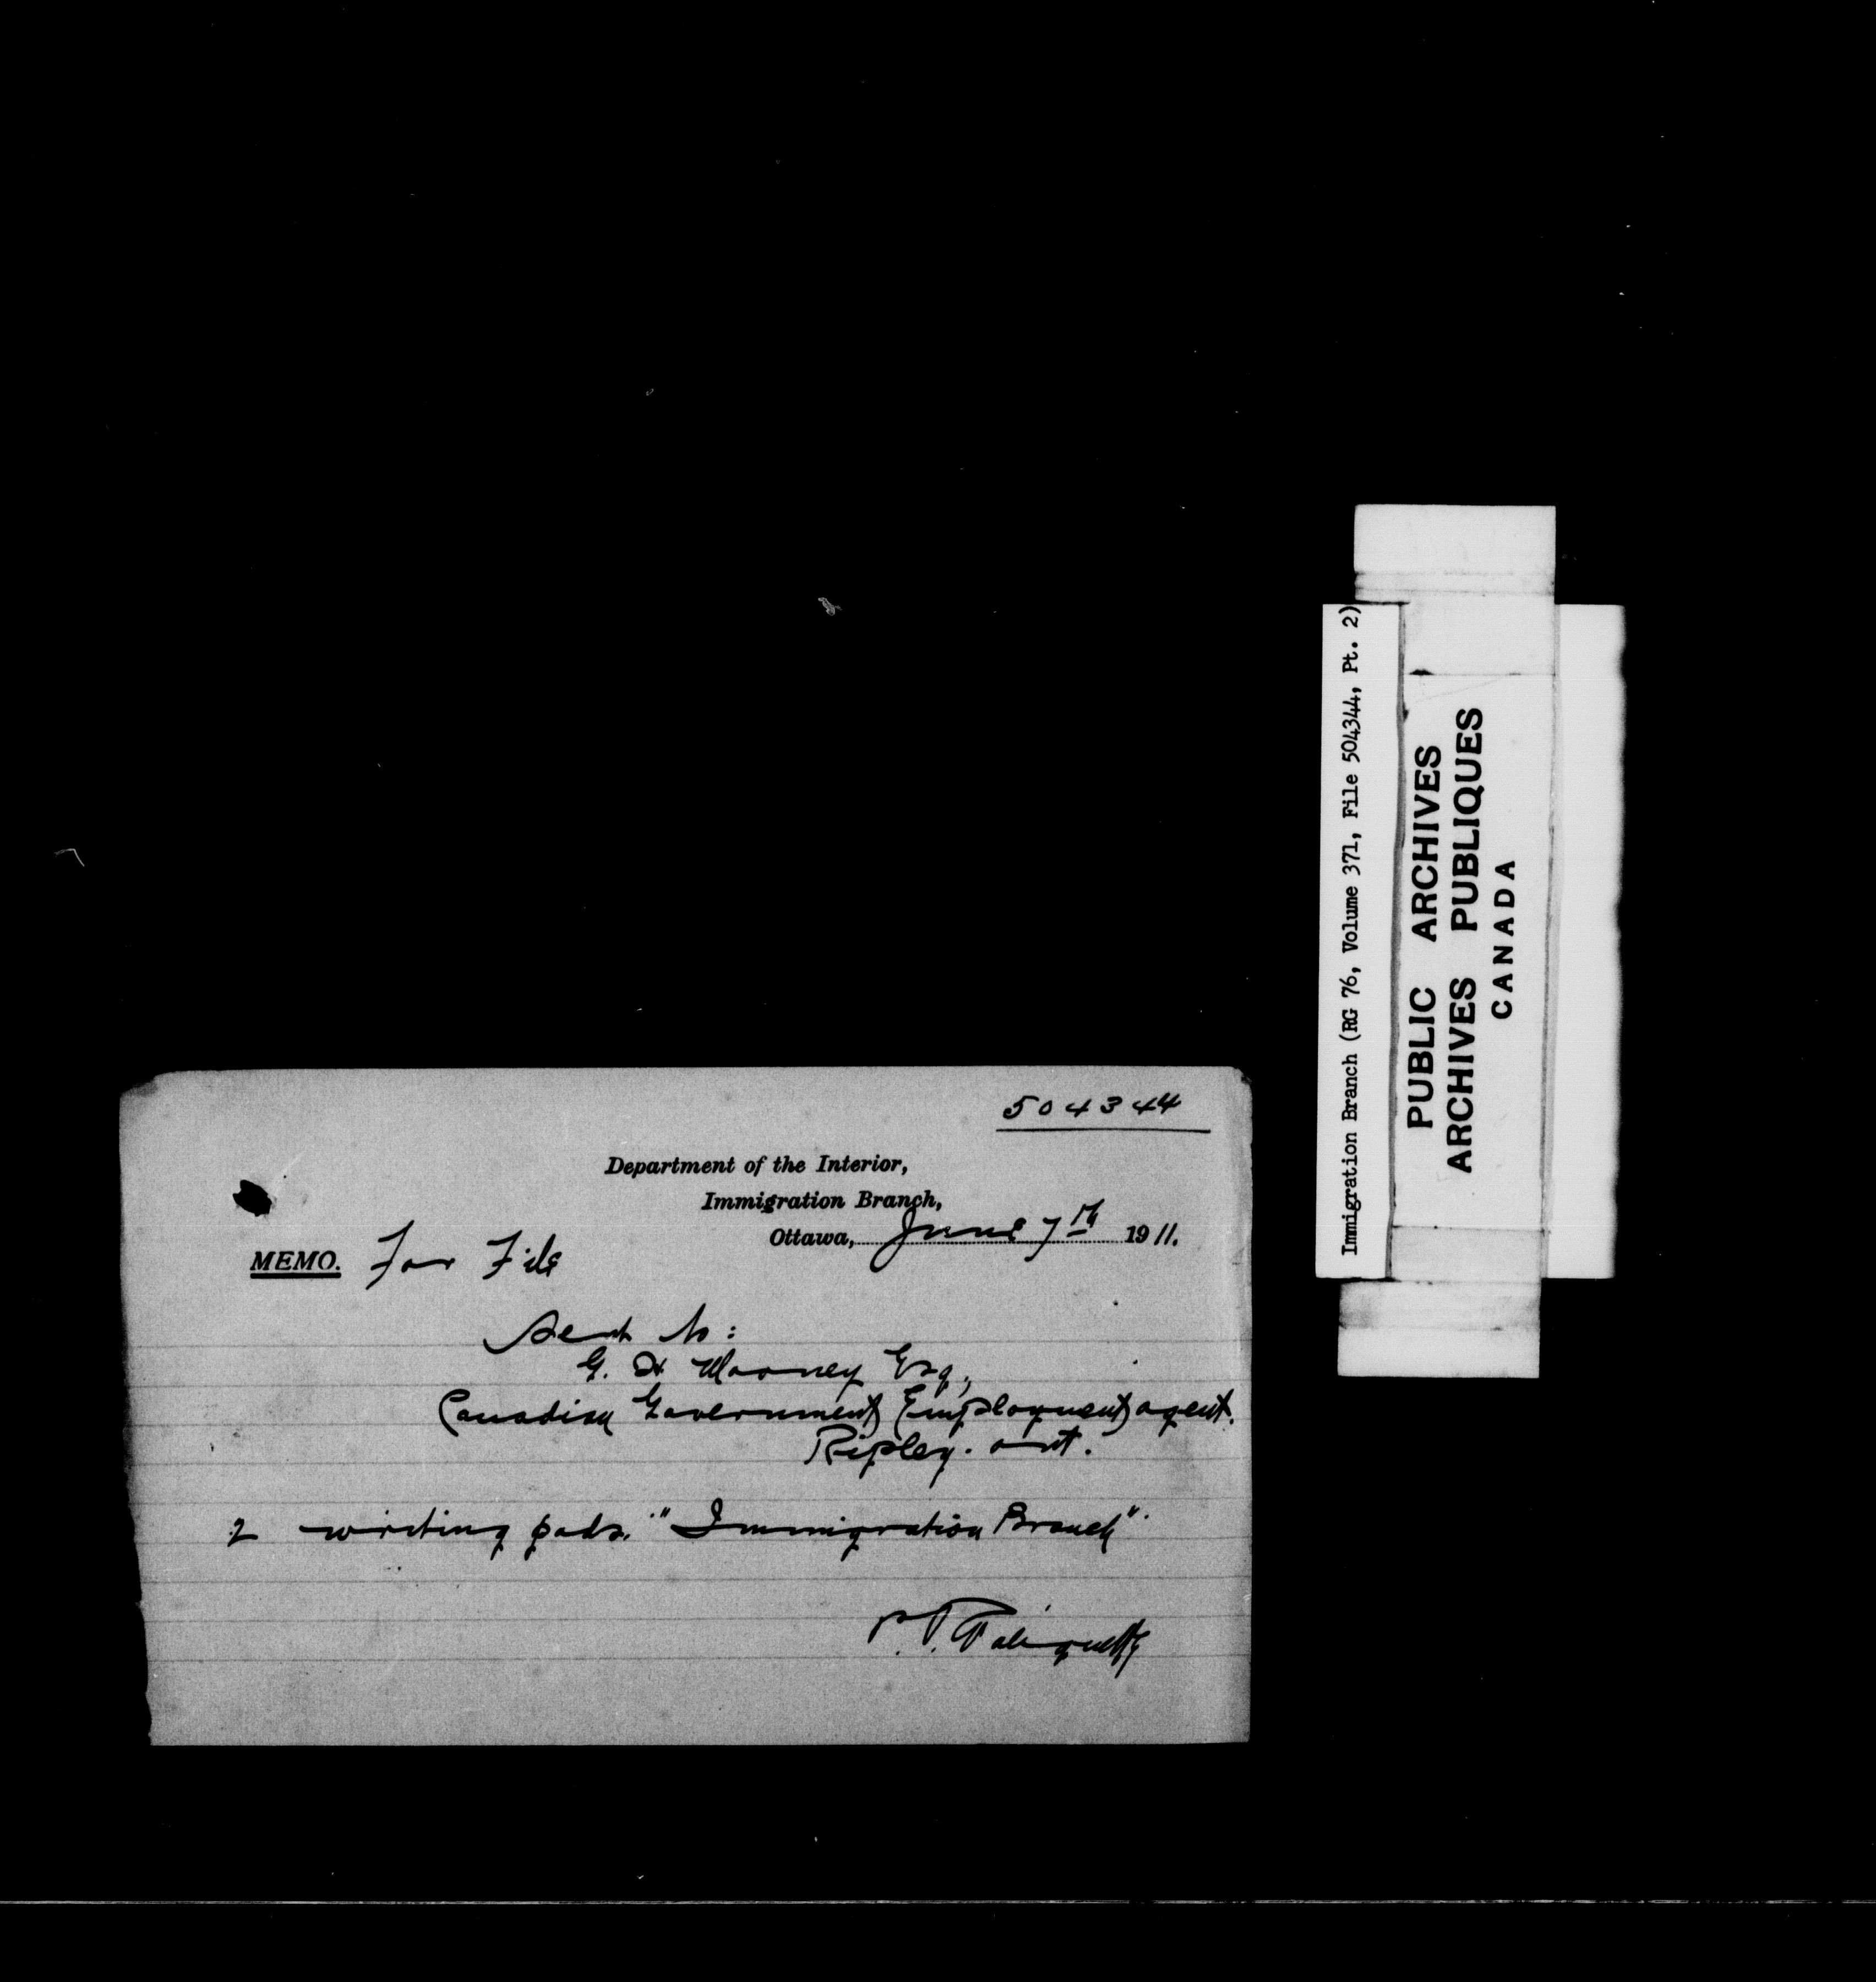 504344
Department of the Interior,
Immigration Branch,
Ottawa, June 7th 1911.
MEMO. For File
Sent to:
G. H Mooney Esq,
Canadian Government Employment agent.
Ripley. ont.
2 writing pads. "Immigration Branch".
P. T. Paliquette
Immigration Branch (RG 76, Volume 371, File 504344, Pt. 2)
PUBLIC ARCHIVES
ARCHIVES PUBLIQUES
CANADA